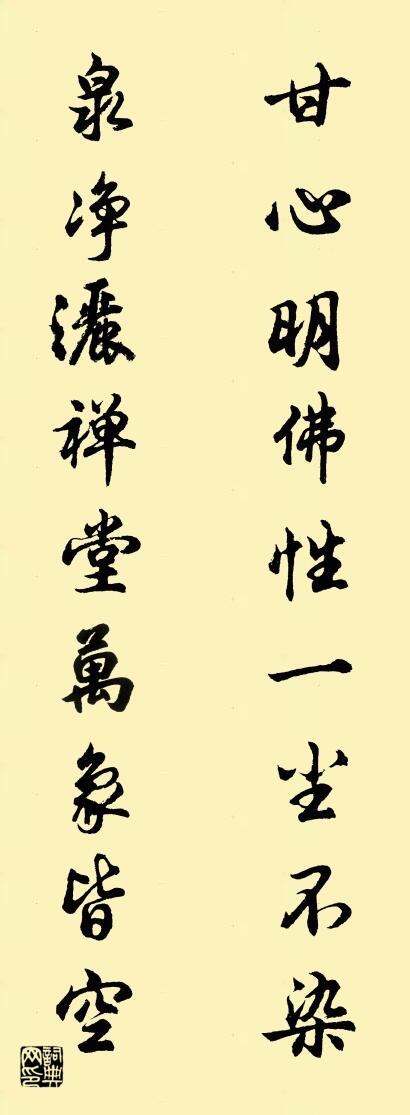 甘心明佛性一尘不染
泉净灑禅堂萬象皆空
詞典网印